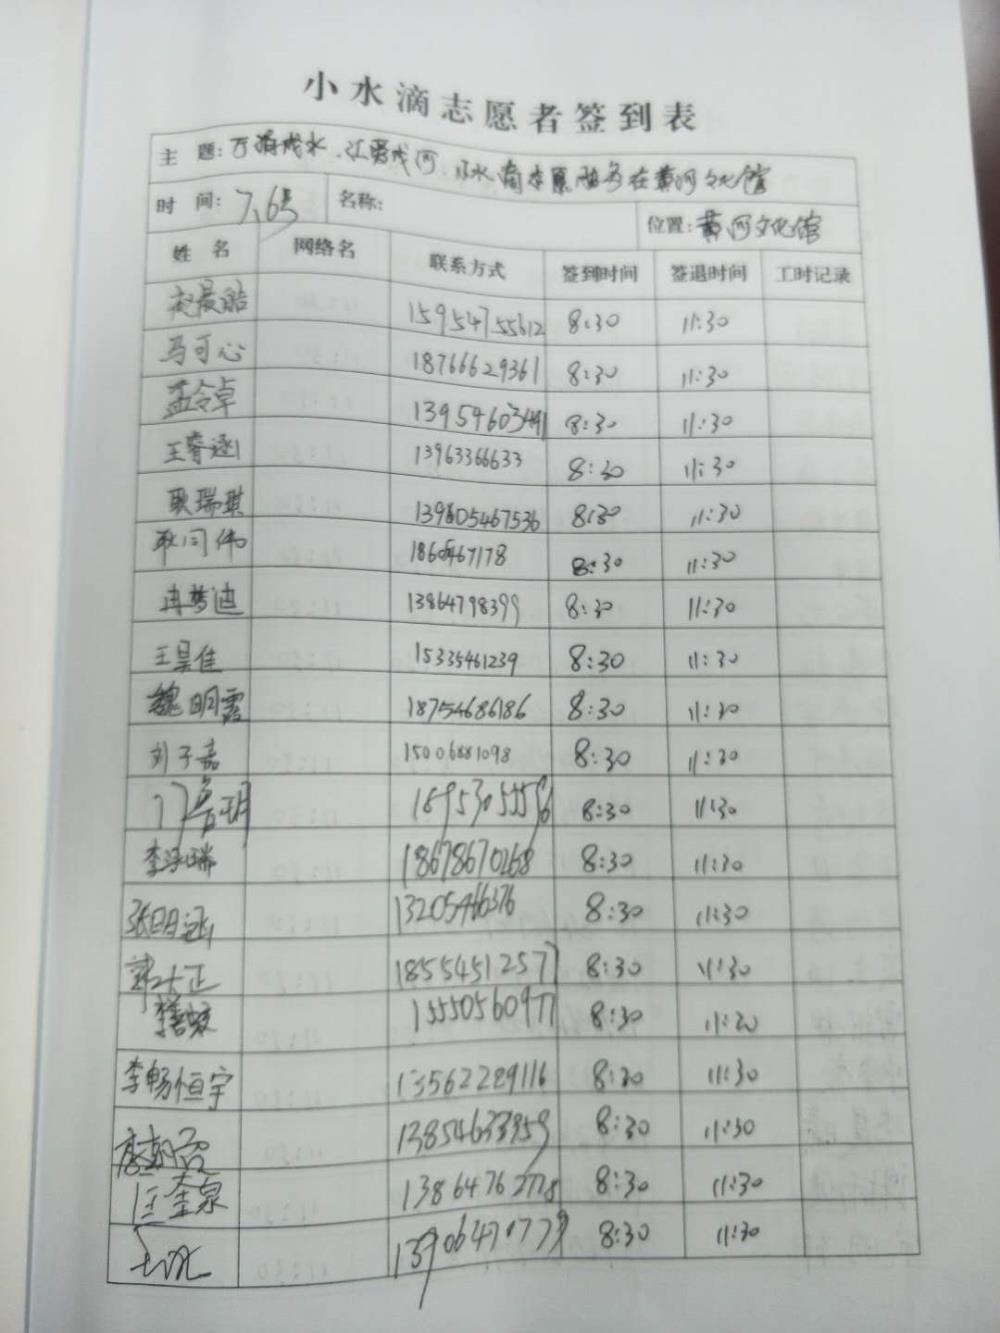 小水滴志愿者签到表
主 题: 万滴成水、江 成河, 小水滴 在黄河文化馆
时 间: 7.6号 名称: 位置: 黄河文化馆
姓 名 网络名 联系方式 签到时间 签退时间 工时记录
赵晨皓 15954755612 8:30 11:30
马可心 18766629361 8:30 11:30
孟令卓 8:30 11:30
王睿涵 13963366633 8:30 11:30
耿瑞琪 8:30 11:30
耿同伟 8:30 11:30
冉梦迪 13864798399 8:30 11:30
王昊佳 15335461239 8:30 11:30
魏明霞 18754686186 8:30 11:30
刘子嘉 15006881098 8:30 11:30
8:30 11:30
李泳瑞 18678670268 8:30 11:30
张明涵 13205466376 8:30 11:30
郭大正 18554512577 8:30 11:30
15550560977 8:30 11:30
李畅恒宇 13562289116 8:30 11:30
13854633959 8:30 11:30
8:30 11:30
8:30 11:30